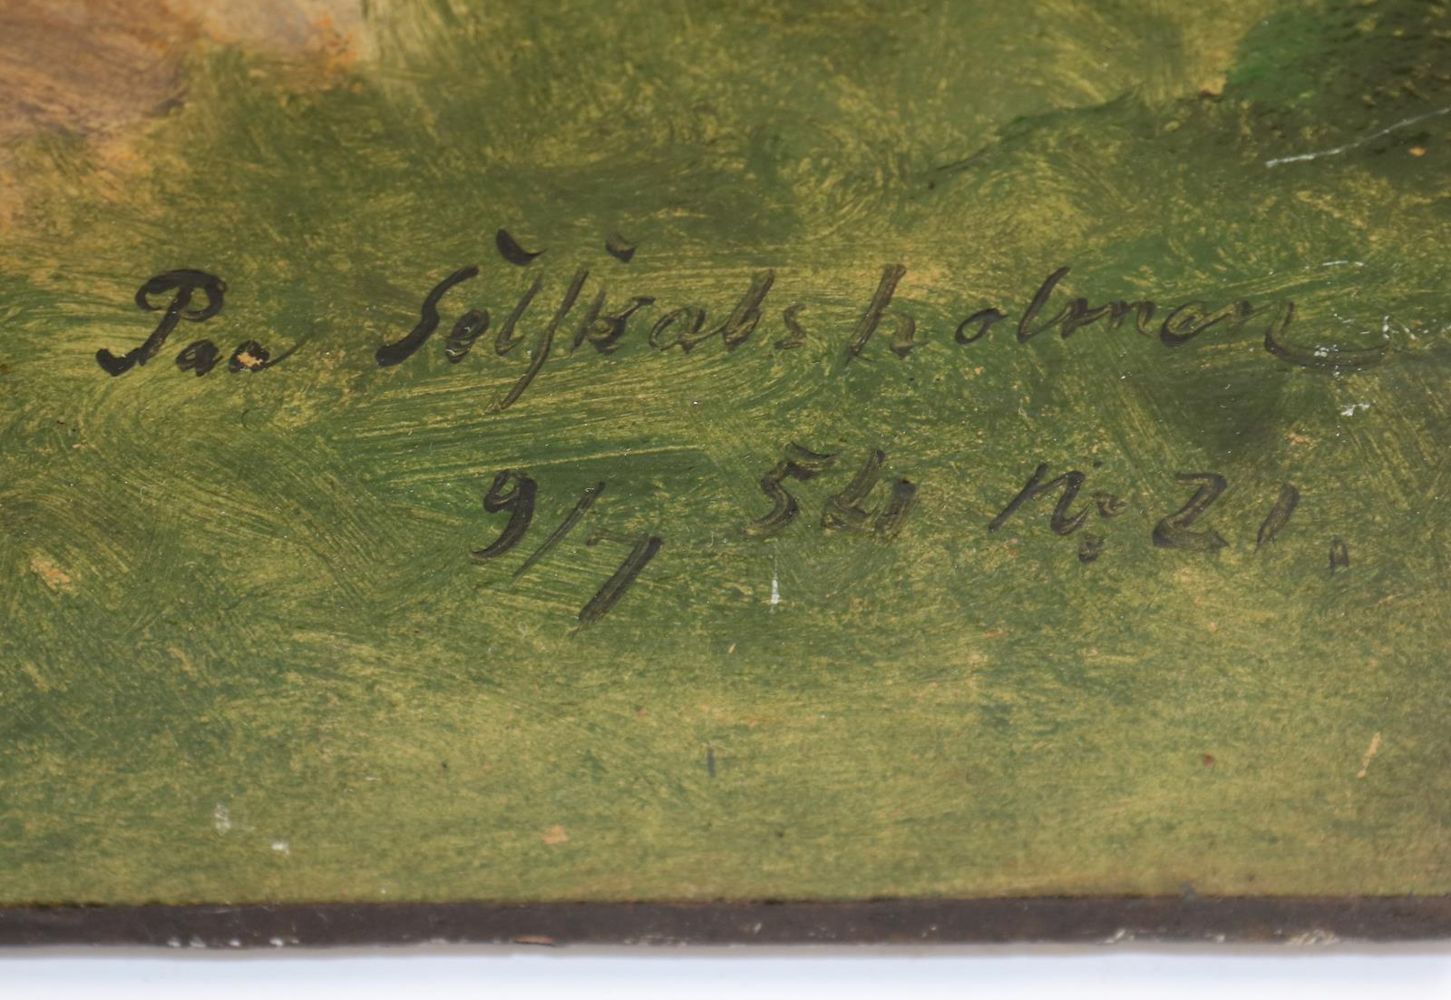 Paa Selſkabsholmen
9/7 54 No 21.